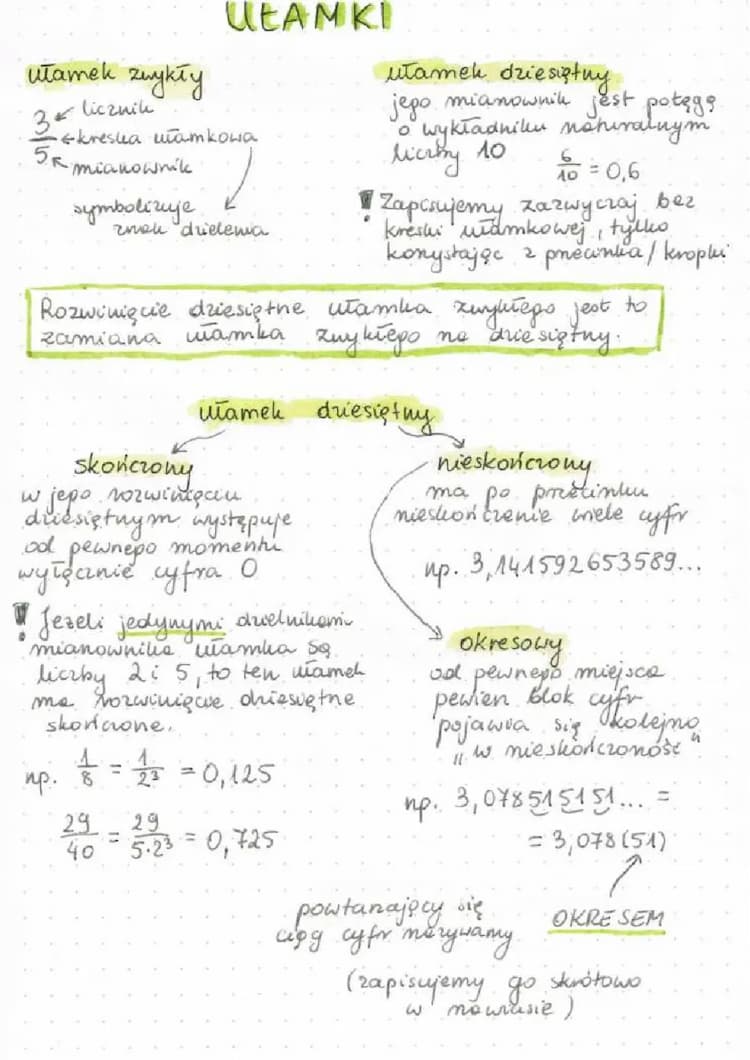 UŁAMKI
ułamek zwykły
3/5
licznik
kreska ułamkowa
mianownik
symbolizuje
znak dzielenia
ułamek dziesiętny
jego mianownik jest potęgą
o wykładniku naturalnym
liczby 10
6/10 = 0,6
! Zapisujemy zazwyczaj bez
kreski ułamkowej, tylko
korzystając z przecinka / kropki
Rozwinięcie dziesiętne ułamka zwykłego jest to
zamiana ułamka zwykłego na dziesiętny.
ułamek dziesiętny
skończony
w jego rozwinięciu
dziesiętnym występuje
od pewnego momentu
wyłącznie cyfra 0
! Jeżeli jedynymi dzielnikami
mianownika ułamka są
liczby 2 i 5, to ten ułamek
ma rozwinięcie dziesiętne
skończone.
np. 1/8 = 1/2³ = 0,125
29/40 = 29/5·2³ = 0,725
nieskończony
ma po przecinku
nieskończenie wiele cyfr
np. 3,141592653589...
okresowy
od pewnego miejsca
pewien blok cyfr
pojawia się kolejno
"w nieskończoność"
np. 3,078515151... =
= 3,078(51)
powtarzający się
ciąg cyfr nazywamy
OKRESEM
(zapisujemy go skrótowo
w nawiasie)